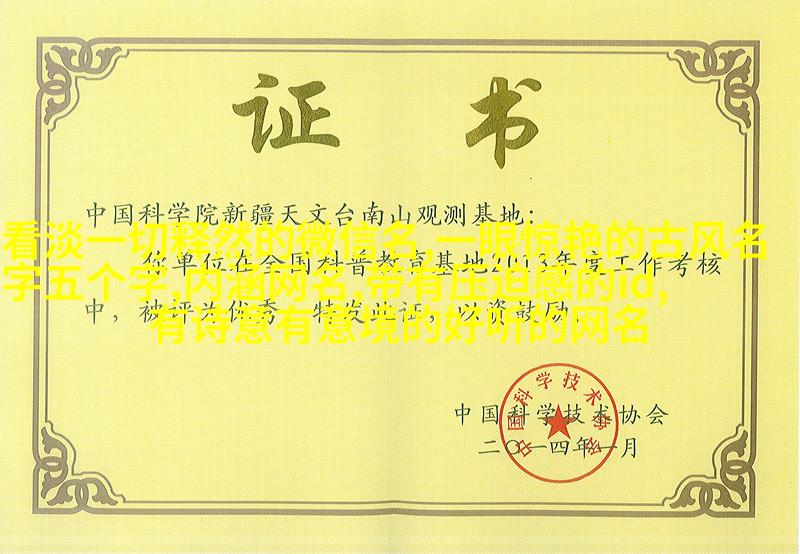 证 书
中国科学院新疆天文台南山观测基地:
看淡一切释然的微信名,一眼惊艳的古风名
你单位在全国科普教育基地2013年度工作考核
字五个字,内涵网名,带有压迫感的id,
中，被评为优秀。特发此证，以资鼓励。
有诗意有意境的好听的网名
中国科学技术协会
中国科学技术协会
二〇一四年一月